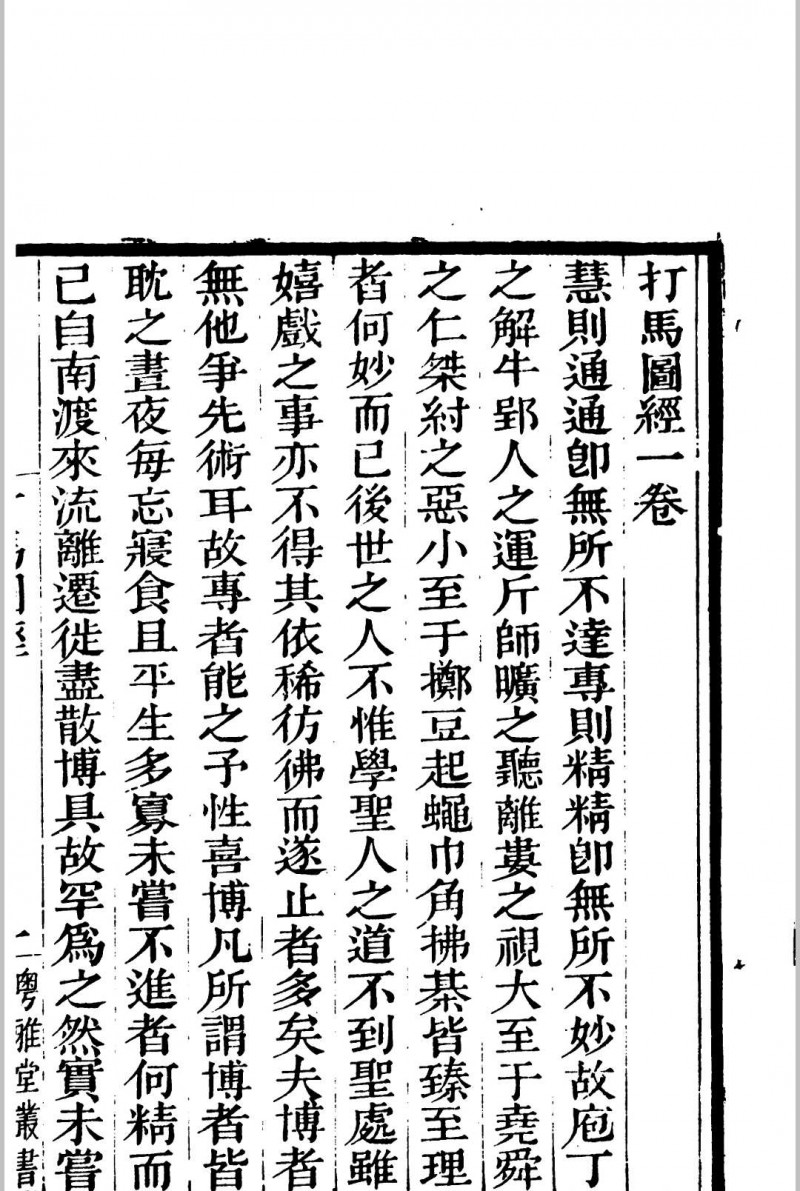 打馬圖經一卷
慧則通通卽無所不達專則精精卽無所不妙故庖丁
之解牛郢人之運斤師曠之聽離婁之視大至于堯舜
之仁桀紂之惡小至于擲豆起蠅巾角拂棊皆臻至理
者何妙而已後世之人不惟學聖人之道不到聖處雖
嬉戲之事亦不得其依稀彷彿而遂止者多矣夫博者
無他爭先術耳故專者能之予性喜博凡所謂博者皆
耽之晝夜每忘寢食且平生多寡未嘗不進者何精而
已自南渡來流離遷徙盡散博具故罕爲之然實未嘗
粵雅堂叢書